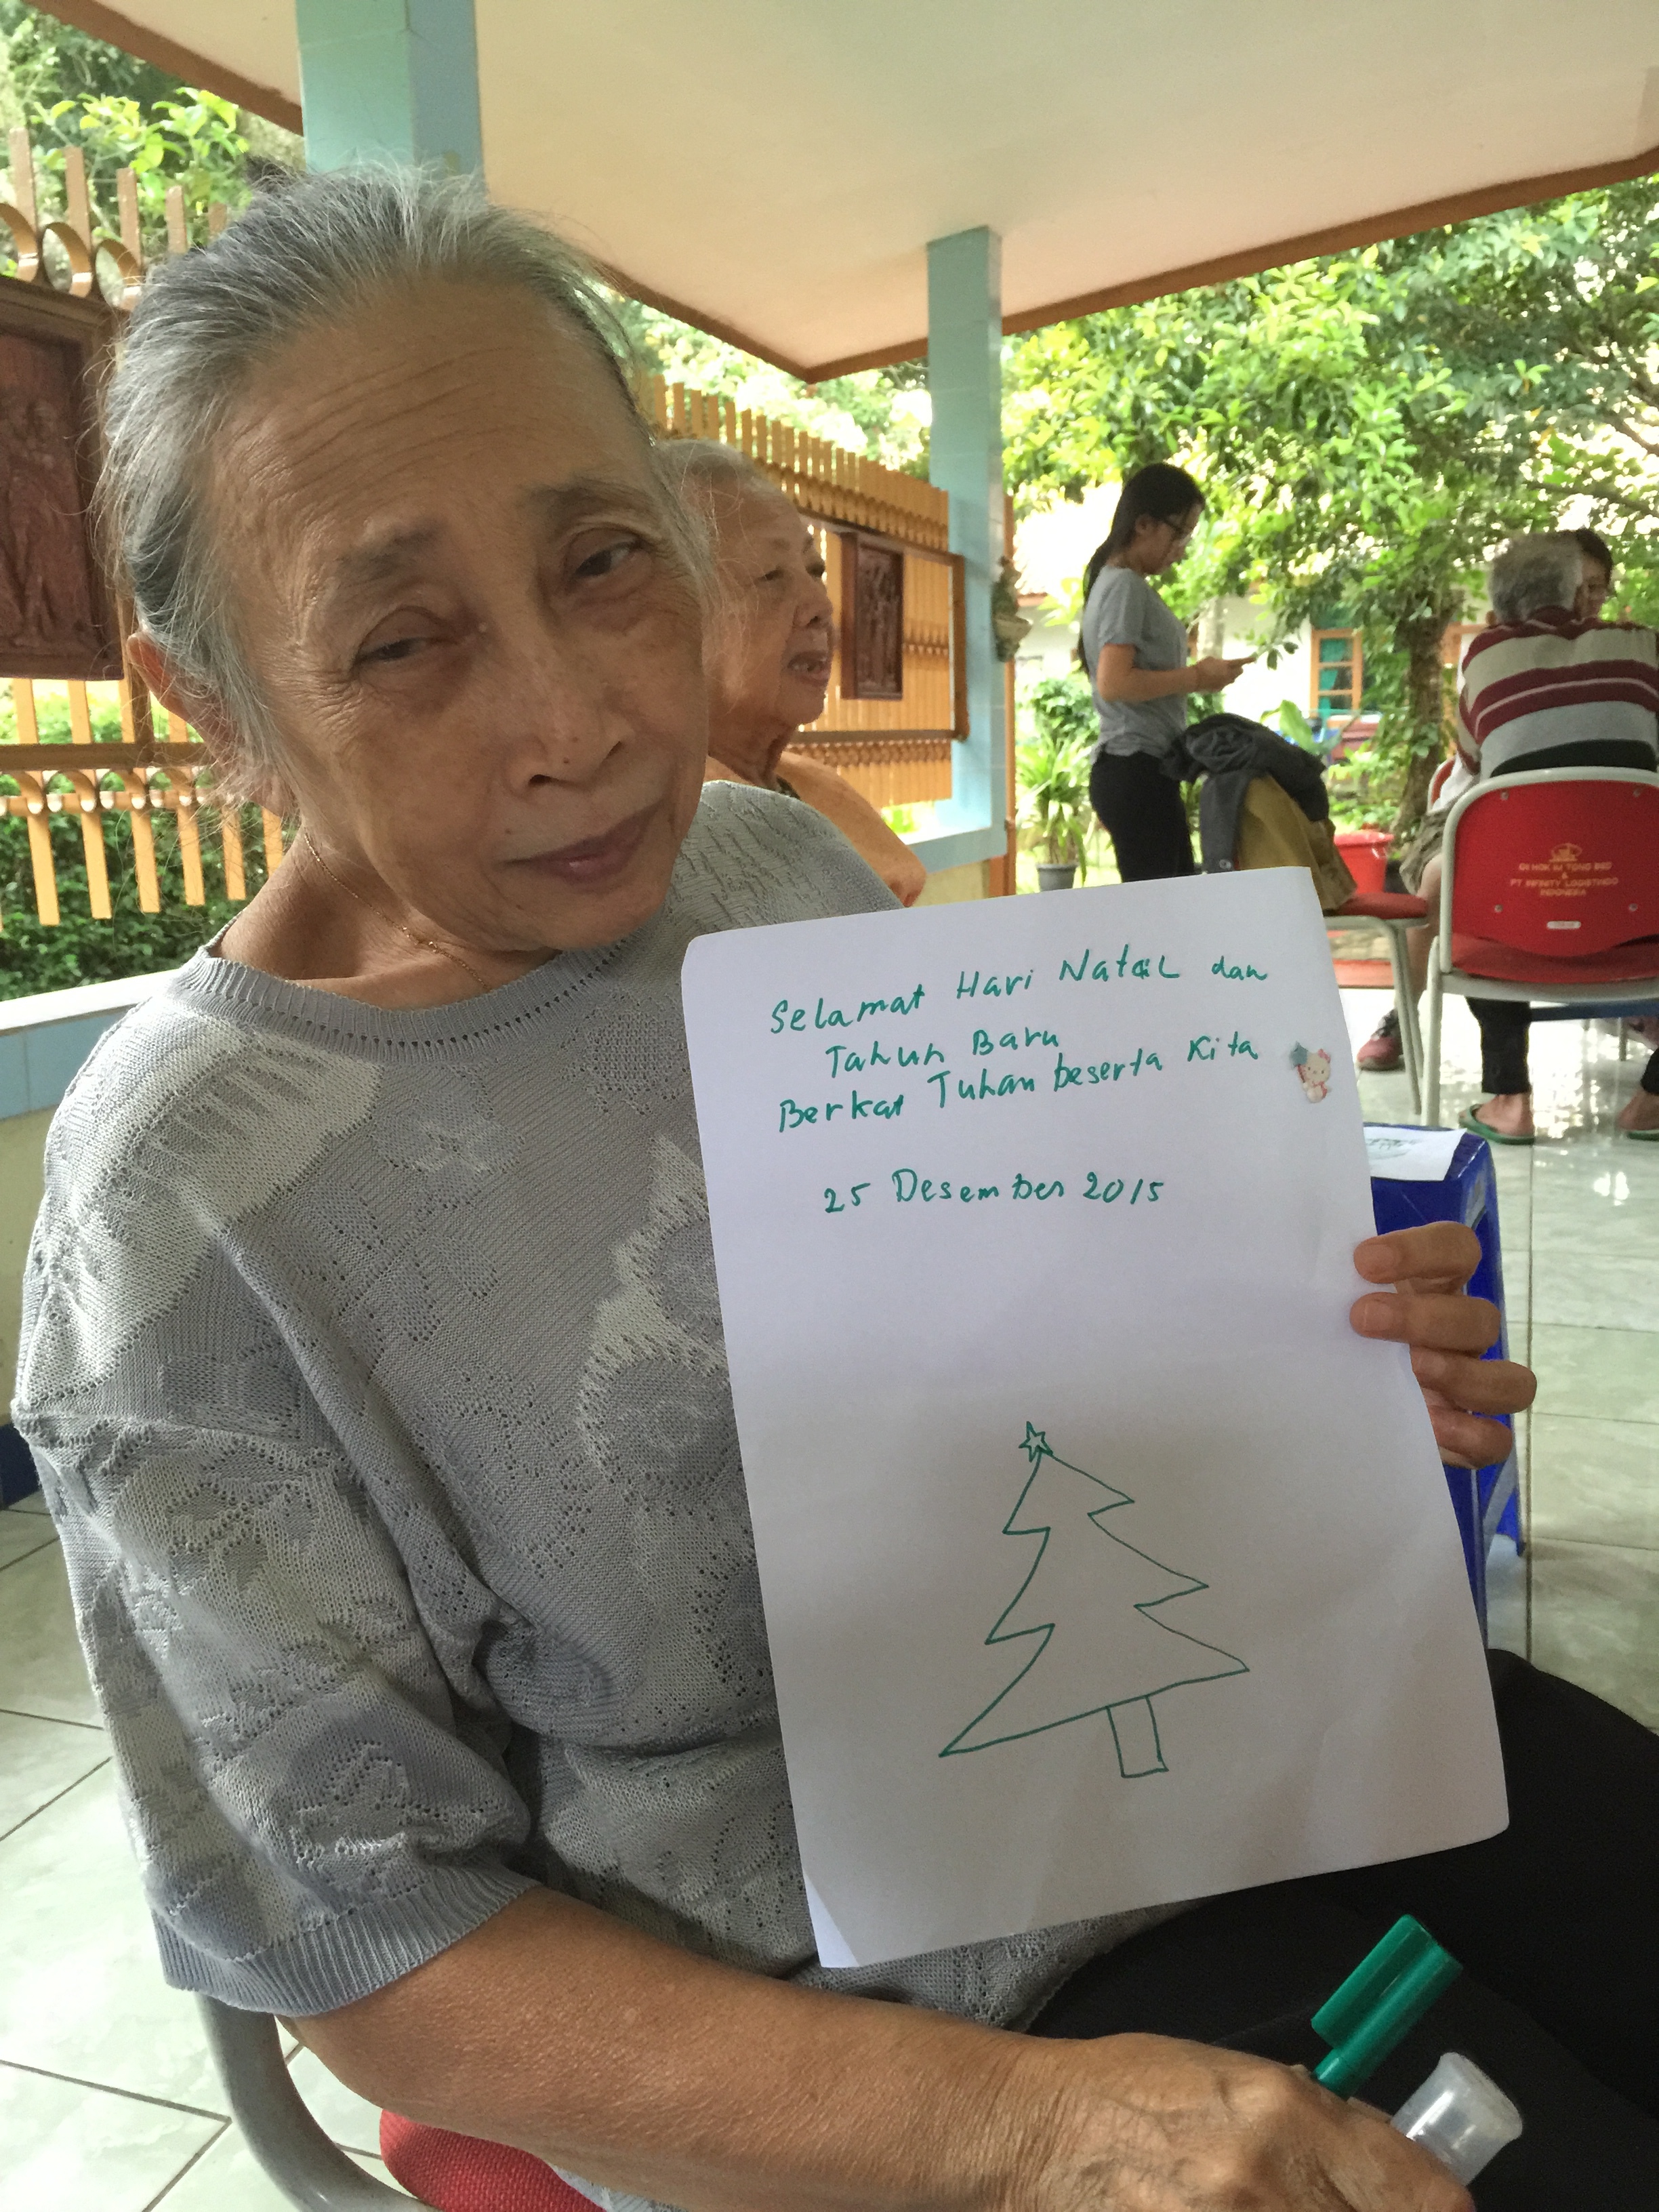 Selamat Hari Natal dan
Tahun Baru
Berkat Tuhan beserta Kita
25 Desember 2015
GI HOK IM TONG BSD
&
PT INFINITY LOGISTINDO
INDONESIA